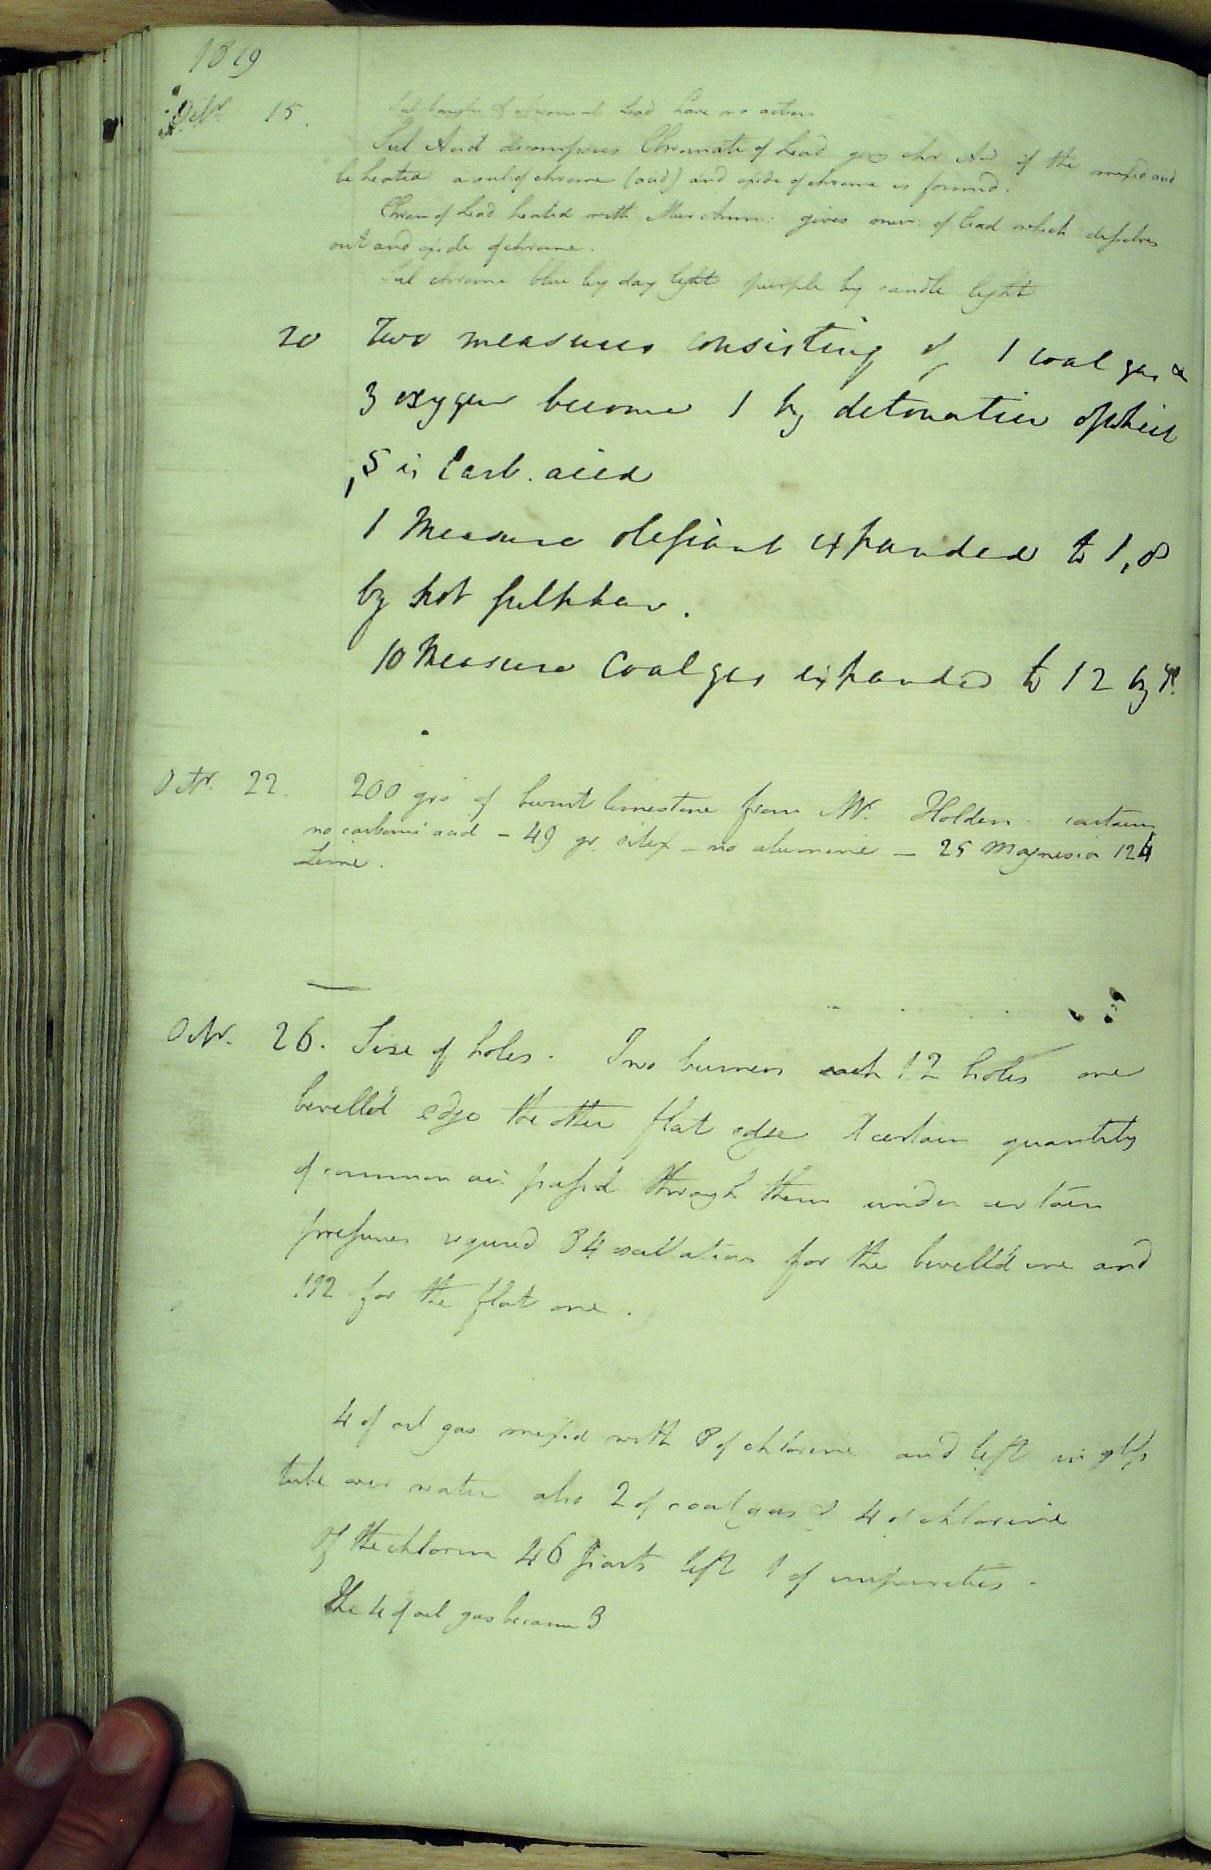 1819
Octr. 15. Sul carbon & chromate Lead have no action
Sul Acid decomposes Chromate of Lead gives chr Acid if the mixed acid
be heated a sul of chrome (acid) and oxide of chrome is formed.
Chrom of Lead heated with Mur Amm: gives mur: of lead which dissolves
out and oxide of chrome.
Sul chrome blue by day light purple by candle light
20 Two measures consisting of 1 coal gas &
3 oxygen become 1 by detonation of which
,5 is Carb. acid
1 Measure olefiant expanded to 1,8
by hot sulphur.
10 Measure Coal gas expanded to 12 by
Octr. 22. 200 grs of burnt limestone from Mr. Holden contains
no carbonic acid - 49 gr. silex - no alumine - 25 Magnesia 124
Lime.
Octr. 26. Size of holes. Two burners each 12 holes one
bevell'd edge the other flat edge A certain quantity
of common air passed through them under certain
pressures required 84 oscillations for the bevell'd one and
112 for the flat one.
4 of oil gas mixed with 8 of chlorine and left in glass
tube over water also 2 of coal gas & 4 of chlorine
Of the chlorine 46 parts left 1 of impurities.
The 4 of oil gas became 3